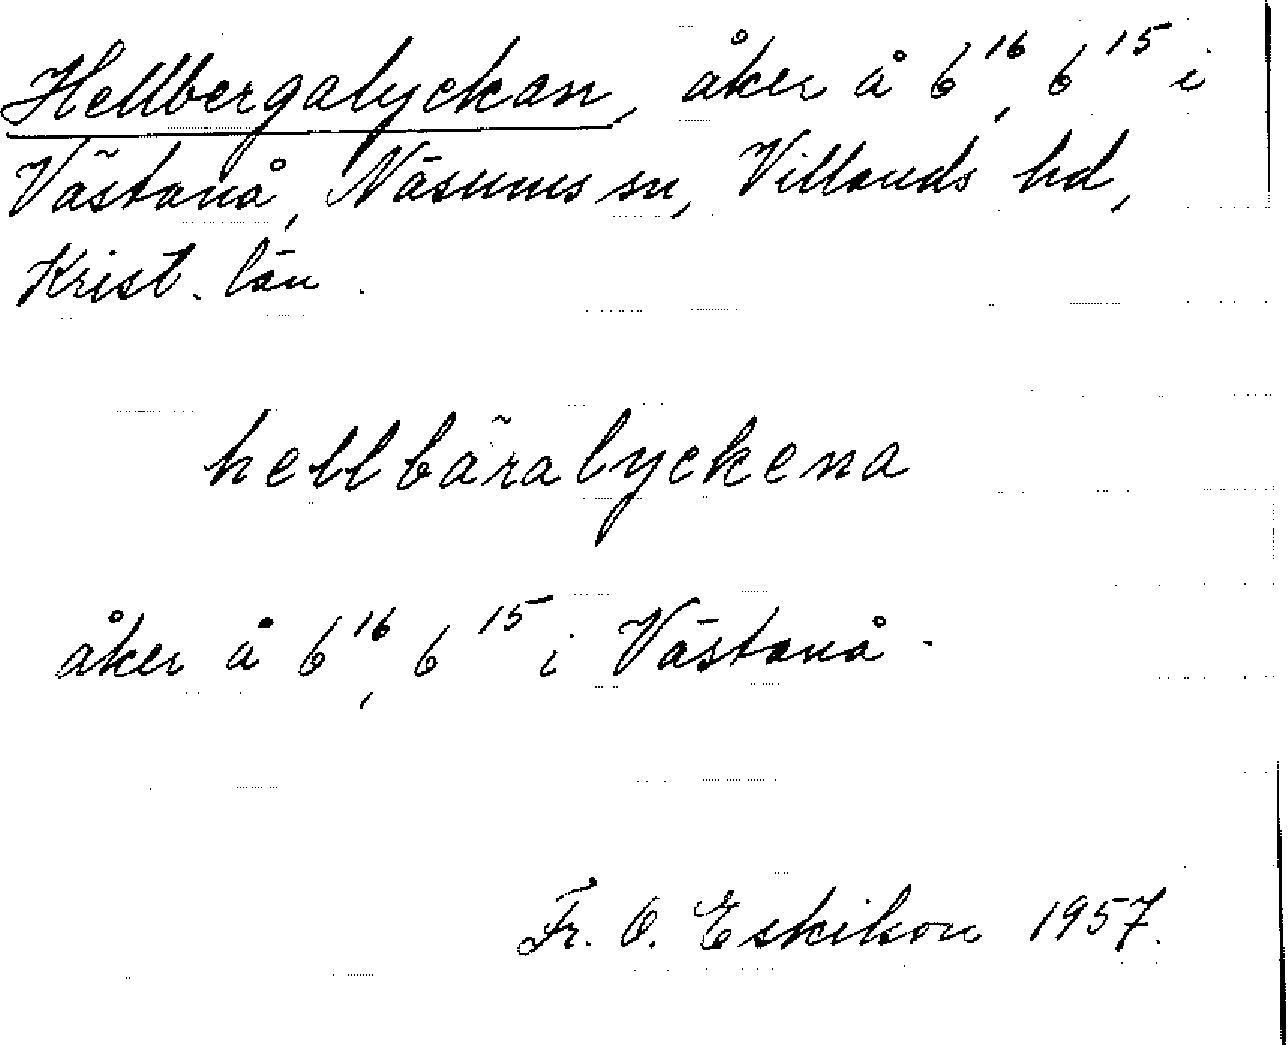 Hellbergalyckan, åker å 6¹⁶, 6¹⁵ i
Västanå, Näsums sn, Villands hd,
Krist. län.
hellbäralyckena
åker å 6¹⁶, 6¹⁵ i Västanå.
Fr. O. Eskilson 1957.